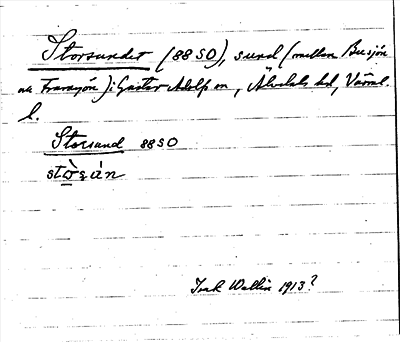 Storsundet (88 SO), sund (mellan Busjön
na Frarsjön) i Gustav Adolfs sn, Älvdals hd, Värml.
l.
Storsund 88 SO
Ivar Wallin 1913?